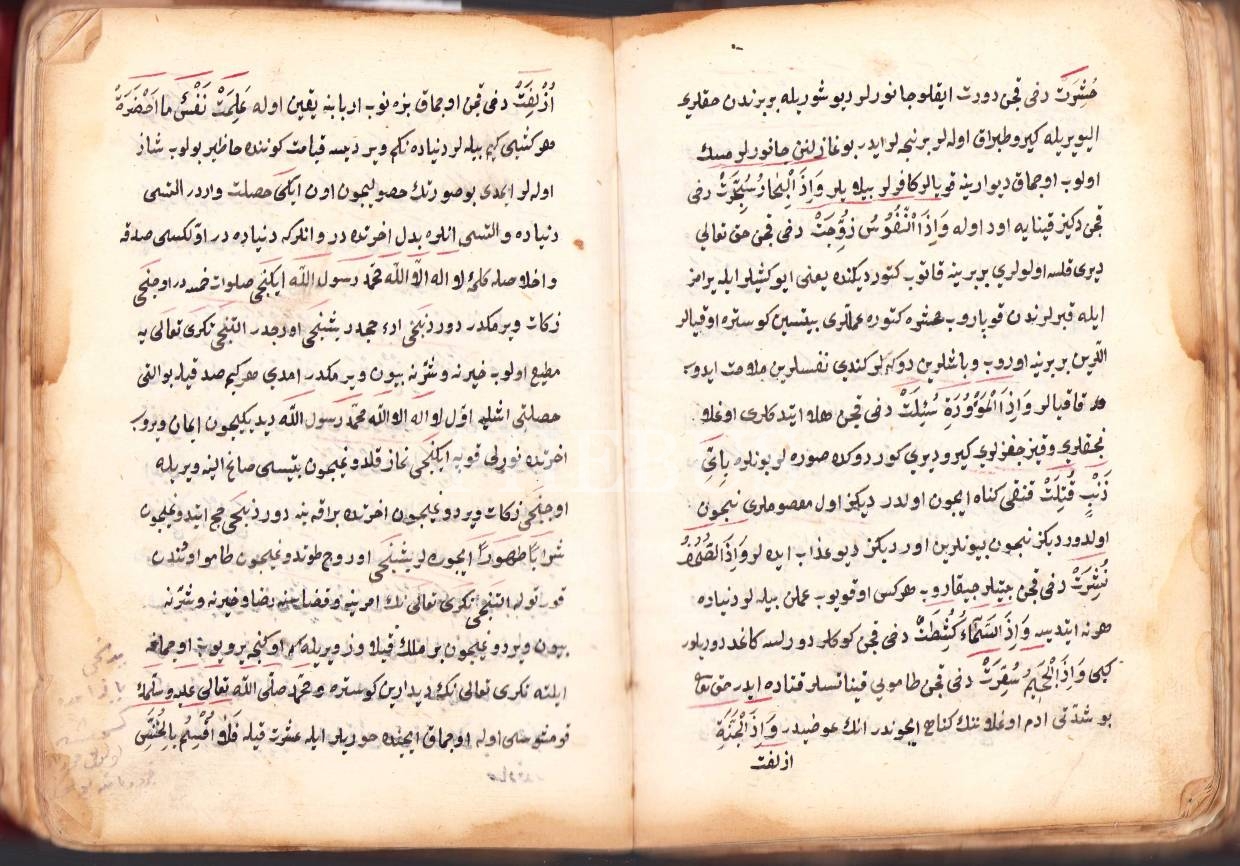 حُشِرَتْ دخى قچن دورت ايقلو جانورلر ديو شوريله بربرندن حقلرى
اليويريله كيرو طبراق اوله لر برنجه لر ايدر بوغازلنن جانورلر مسك
اولوب اوجماق ديوارينه قويالر كافولر بيلو يلر وَاِذَ الْبِحَارُ سُجِّرَتْ دخى
قچن دكيز قينايه اود اوله وَاِذَ النُّفُوسُ زُوِّجَتْ دخى قچن حق تعالى
ديرى قلسه اولولرى بربرينه قاتوب كتورديكنده يعنى ايو كشيلر ايله يرامز
ايله قبرلرندن قوپاروب حشره كتوره عملرى بيتسين كوستره اوقيالر
اللرين بربرينه اوروب وباشلرين دوكه لر كندى نفسلرين ملامت ايدوب
قاقيالر وَاِذَ الْمَوْؤُدَةِ سُئِلَتْ دخى قچن هلاك ايتدكلرى اوغلا
نجقلرى وقيزجغزلرى كيرو ديرى كوردوكده صوره لر بونلره بِاَىِّ
ذَنْبٍ قُتِلَتْ قنقى كناه ايچون اولدرديكز اول معصوملرى نيچون
اولدورديكز نيچون بيونلرين اورديكز ديو عذاب ايده لر وَاِذَ الصُّحُفُ
نُشِرَتْ دخى قچن بيتيلر چيقاروب هركسى اوقويوب عملن بيله لر دنياده
هرنه ايتديسه وَاِذَ السَّمَاءُ كُشِطَتْ دخى قچن كوكلر دورلسه كاغد دوريلور
كبى وَاِذَ الْجَحِيمُ سُعِّرَتْ دخى قچن طامويى قيناتسلر قتاده ايدر حق تعا
بو شدّتى ادم اوغلاننك كناهى ايچوندر انك عوضيدر وَاِذَ الْجَنَّةِ
ازلفت
اُزْلِفَتْ دخى قچن اوجماق بزه نوب اربابنه يقين اوله عَلِمَتْ نَفْسٌ مَا اَحْضَرَتْ
هر كشى كيم بيله لر دنياده نكم ويرديسه قيامت كوننده حاظر بولوب شاذ
اوله لر ايمدى بو صورتك حصوليچون اون ايكى حصلت واردر التسى
دنياده والتسى انلره بدل اخرتده در وانلركه دنياده در اوّلكسى صدقه
واخلاصله كلمۀ لا اله الا الله محمد رسول الله ايكنجى صلوات خمسه در اوچنجى
زكات ويرمكدر دوردنجى اداء حجدر بشنجى اورجدر التنجى تكرى تعالى يه
مطيع اولوب خيرنه وشرّنه بيون ويرمكدر امدى هركيم صدقيله بو التى
حصلتى اشليه اوّل لا اله الا الله محمد رسول الله ديديكيچون ايمان ويروب
اخرتده نورلى قوپه ايكنجى نماز قلدوغيچون بيتسى صاغ الينه ويريله
اوچنجى زكات ويردوغيچون اخرتده براقه بنه دوردنجى حج ايتدوغيچون
شَرَابًا طَهُورًا ايچوره لر بشنجى اورج طوتدوغيچون طامو اوتندن
قورتوله التنجى تكرى تعالى نك امرينه وقضاسنه رضا وخيرنه وشرّنه
بيون ويردوغيچون بر ملك قيلاوز ويريله كم اوكنجه يرويوب اوجماغه
ايلته تكرى تعالى نك ديدارين كوستره ومحمد صلى الله تعالى عليه وسلمك
قومشوسى اوله اوجماق ايچنده حوريلر ايله عشرت قيله فَلَا اُقْسِمُ بِالْخُنَّسِ